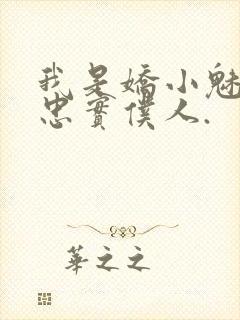 我是嬌小魅
忠實僕人.
華之之